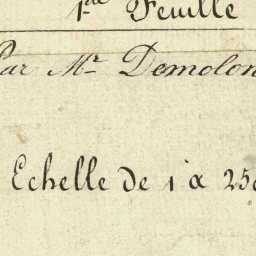 1re Feuille
Par Mr Demolon
Echelle de 1 à 25